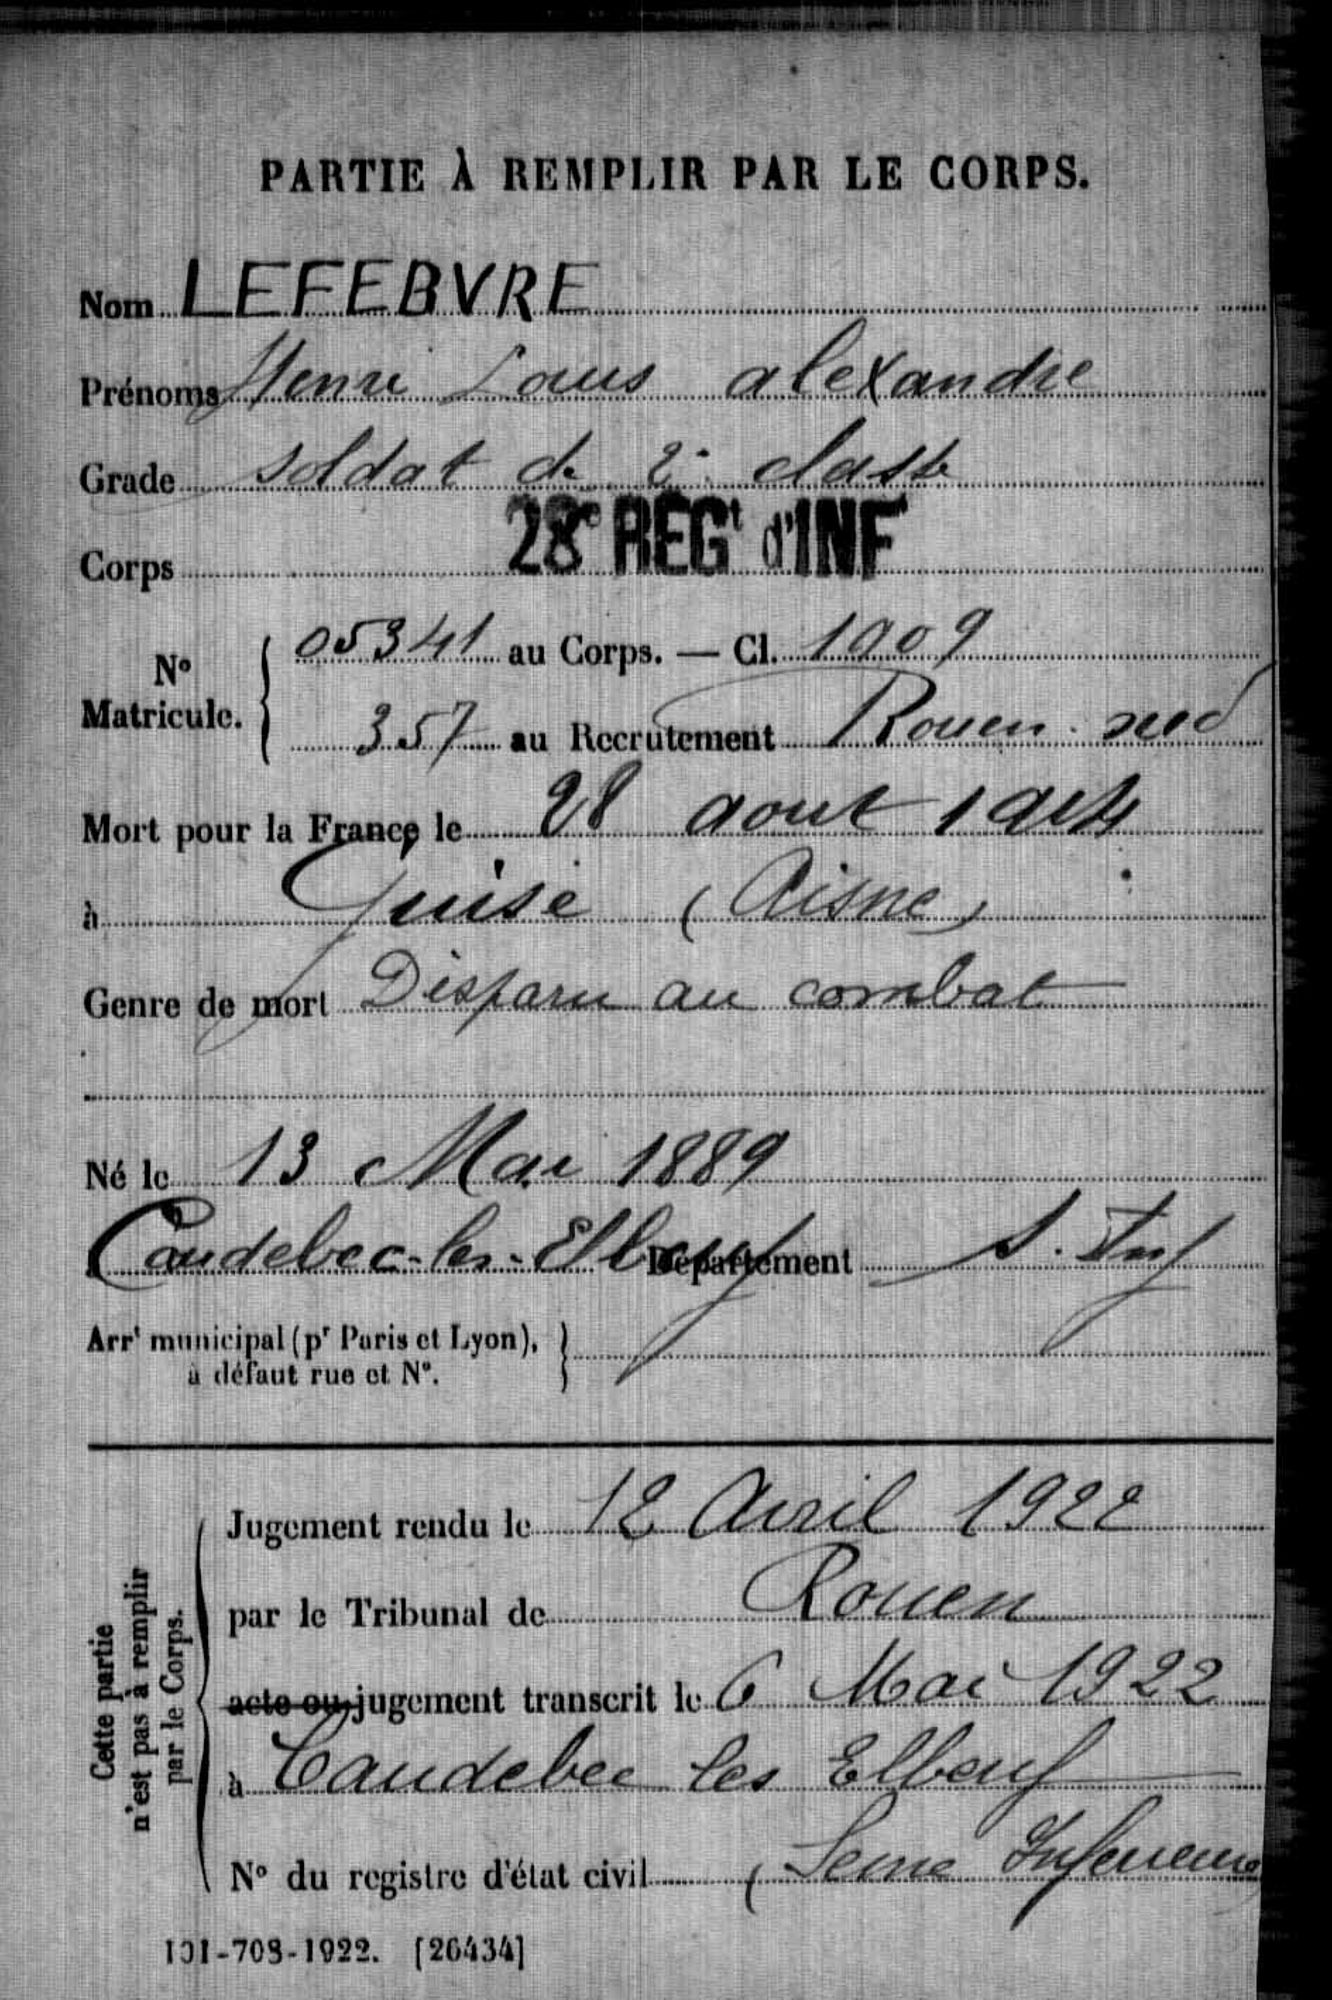 PARTIE À REMPLIR PAR LE CORPS.
Nom LEFEBVRE
Prénoms Henri Louis alexandre
Grade soldat de 2e classe
Corps 28e RÉGt d'INF
No Matricule. 05341 au Corps. — Cl. 1909
357 au Recrutement Rouen sud
Mort pour la France le 28 aout 1914
à Guise (Aisne)
Genre de mort Disparu au combat
Né le 13 Mai 1889
Caudebec-les-Elbeuf Département S. Infre
Arrt municipal (pr Paris et Lyon),
à défaut rue et No.
Cette partie
n'est pas à remplir
par le Corps.
Jugement rendu le 12 Avril 1922
par le Tribunal de Rouen
acte ou jugement transcrit le 6 Mai 1922
à Caudebec les Elbeuf
No du registre d'état civil (Seine Inferieure)
101-708-1922. [26434]